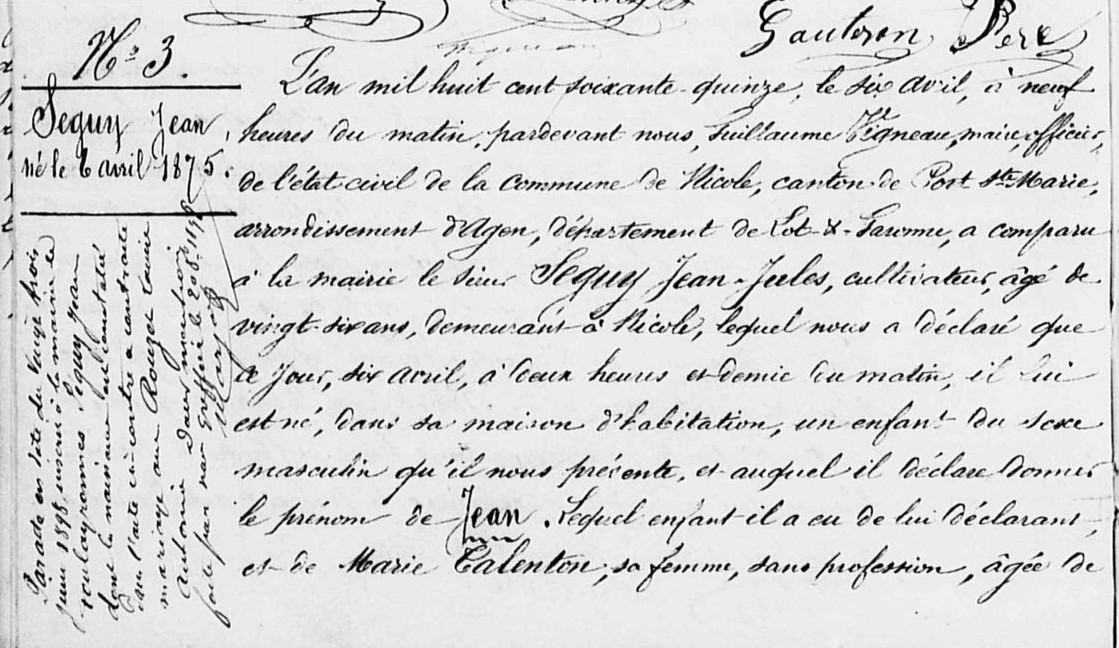 Gauteron Père
N° 3.
Seguy Jean,
né le 6 avril 1875.
L'an mil huit cent soixante-quinze, le six avril, à neuf
heures du matin, pardevant nous, Guillaume Vigneau, maire, officier
de l'état civil de la Commune de Nicole, canton de Port Ste Marie,
arrondissement d'Agen, département de Lot-&-Garonne, a comparu
à la mairie le sieur Seguy Jean-Jules, cultivateur, âgé de
vingt-six ans, demeurant à Nicole, lequel nous a déclaré que
ce jour, six avril, à deux heures et demie du matin, il lui
est né, dans sa maison d'habitation, un enfant du sexe
masculin qu'il nous présente, et auquel il déclare donner
le prénom de Jean. Lequel enfant il a eu de lui déclarant,
et de Marie Talenton, sa femme, sans profession, âgée de
Par acte en date du vingt trois
juin 1898, à la mairie de
Seguy Jean
dont la naissance est constatée
par l'acte ci-contre a contracté
mariage avec Rouzet Louise
Antonia
faite par nar greffier le